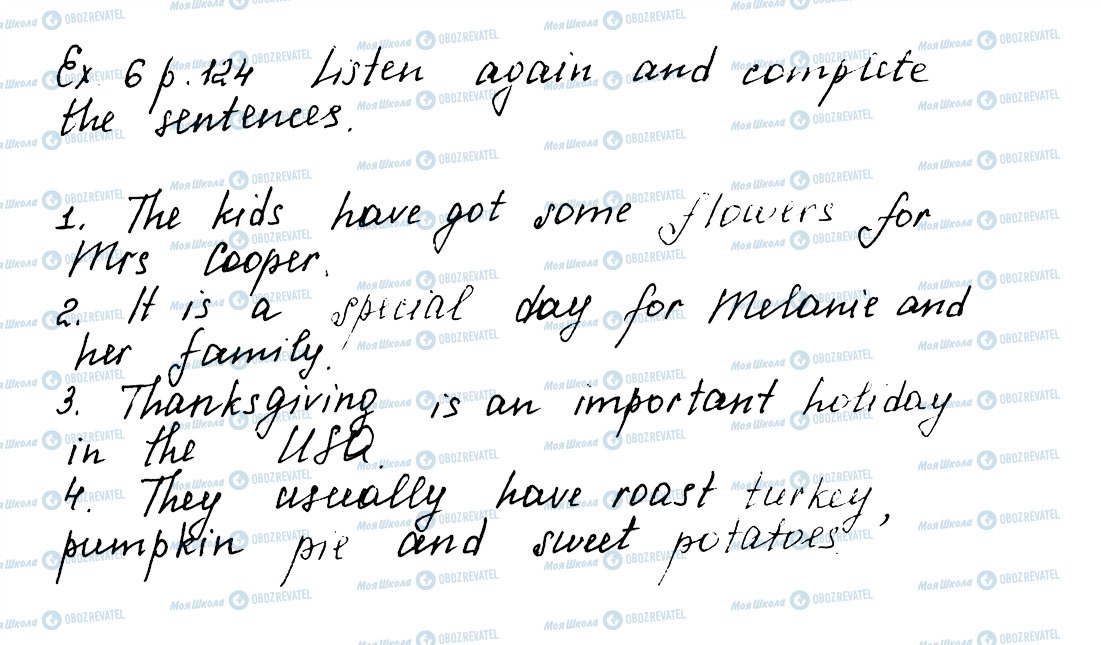 Ex. 6 p. 124 Listen again and complete
the sentences.
1. The kids have got some flowers for
Mrs Cooper.
2. It is a special day for Melanie and
her family.
3. Thanksgiving is an important holiday
in the USA.
4. They usually have roast turkey,
pumpkin pie and sweet potatoes.